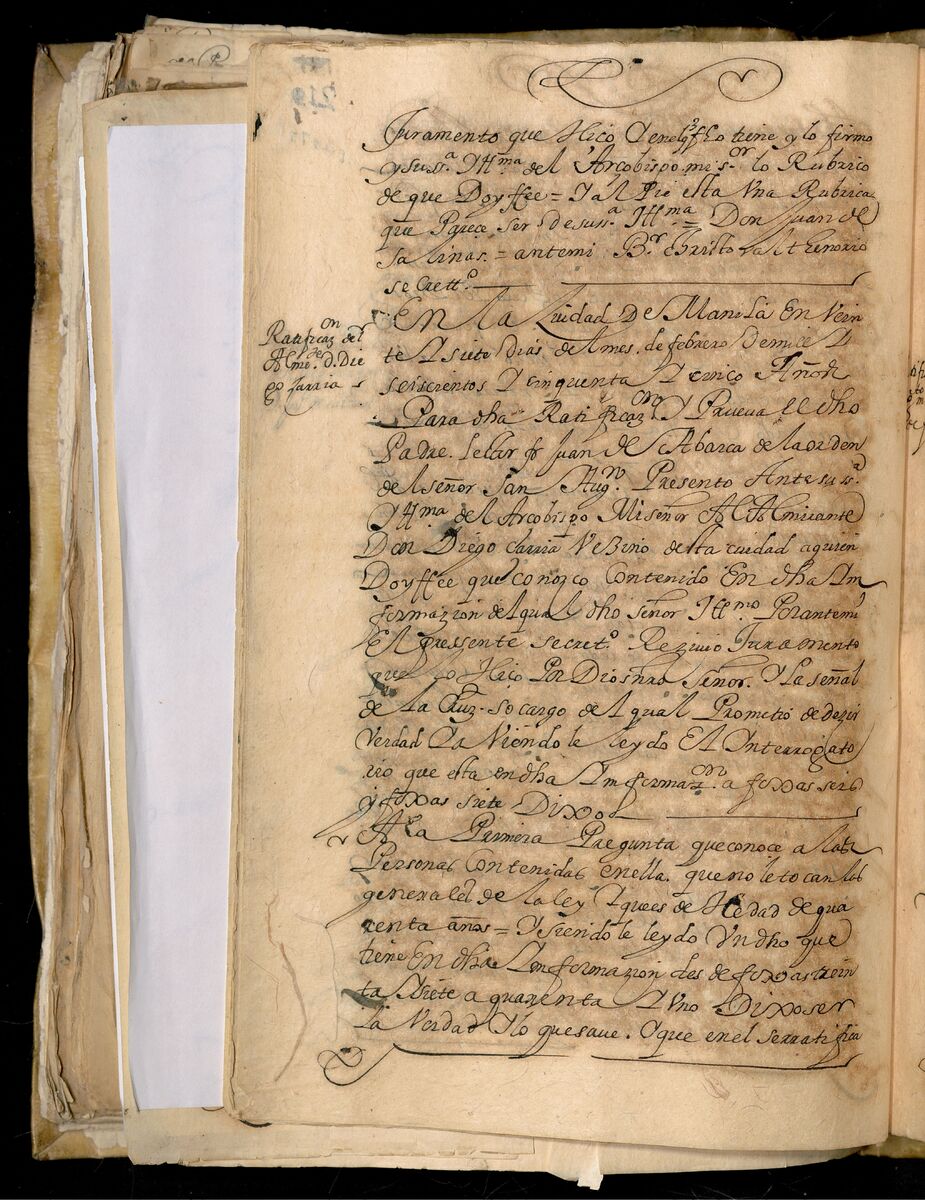 Juramento que Hiço Y en el q̃ fho tiene y lo firmo
y su ss.ª Yllma del Arcobispo mi s.or lo Rubrico
de que Doyffee = Y al Pie esta Vna Rubrica
que Pareçe ser de su ss.ª Yllma = Don Juan de
salinas = antemi Br Christoval thenorio
secrett.º
Ratificaz.on del
Alm.te d. Die
go sarria
En la Ciudad De Manila En Vein
te Y siete Dias del mes. de febrero Demill Y
seiscientos Y cinquenta Y cinco Años
Para dha Ratificaz.on Y Prueva el dho
Padre. Letor fr Juan de Abarca de la orden
del señor San Aug.no Presento Ante su ss.ª
Yllma del Arcobispo Mi señor Al Almirante
Don Diego sarria Vezino desta ciudad a quien
Doyffee que conozco Contenido En dha Im
formazion del qual dho señor Yllmo Por antemi
El pressente secret.º Rezivio Juramento
que lo Hiço Por Dios nro Señor. Y La señal
de La Cruz so cargo del qual Prometio de dezir
Verdad Y aViendo le leydo El Ynterrogato
rio que esta en dha Imformaz.on a foxas seis
y foxas siete Dixo
A la Primera Pregunta que conoce a las
Personas Contenidas en ella. que no le tocan las
generales de la ley Y que es de Hedad de qua
renta años = Y siendo le leydo Un dho que
tiene En dha Imformazion desde foxas trein
ta Y siete a quarenta Y Vno Dixo ser
La Verdad Y lo que save. Y que en el se rratifica